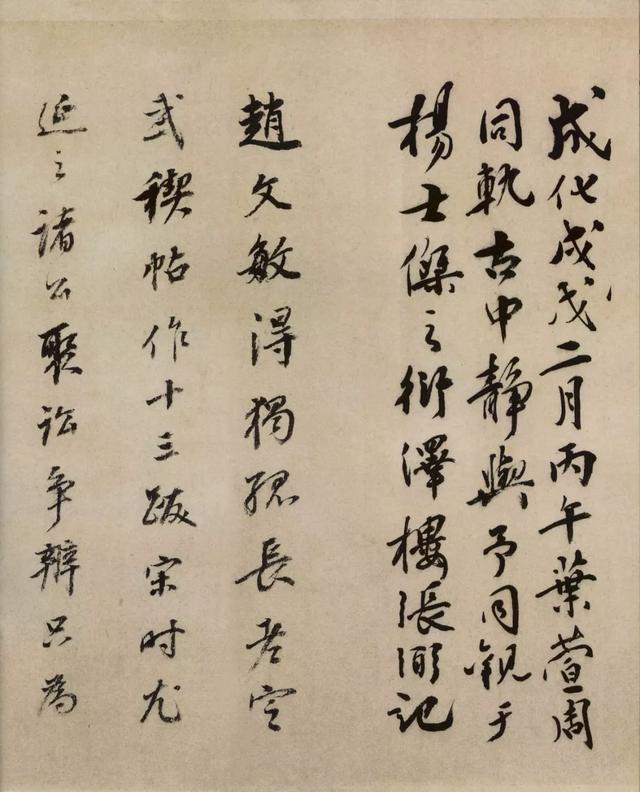 成化戊戌二月丙午葉萱周
同軌古中靜與予同觀于
楊士傑之衍澤樓張弼記
趙文敏得獨孤長老定
武禊帖作十三跋宋时尤
延之諸公聚訟爭辨只為